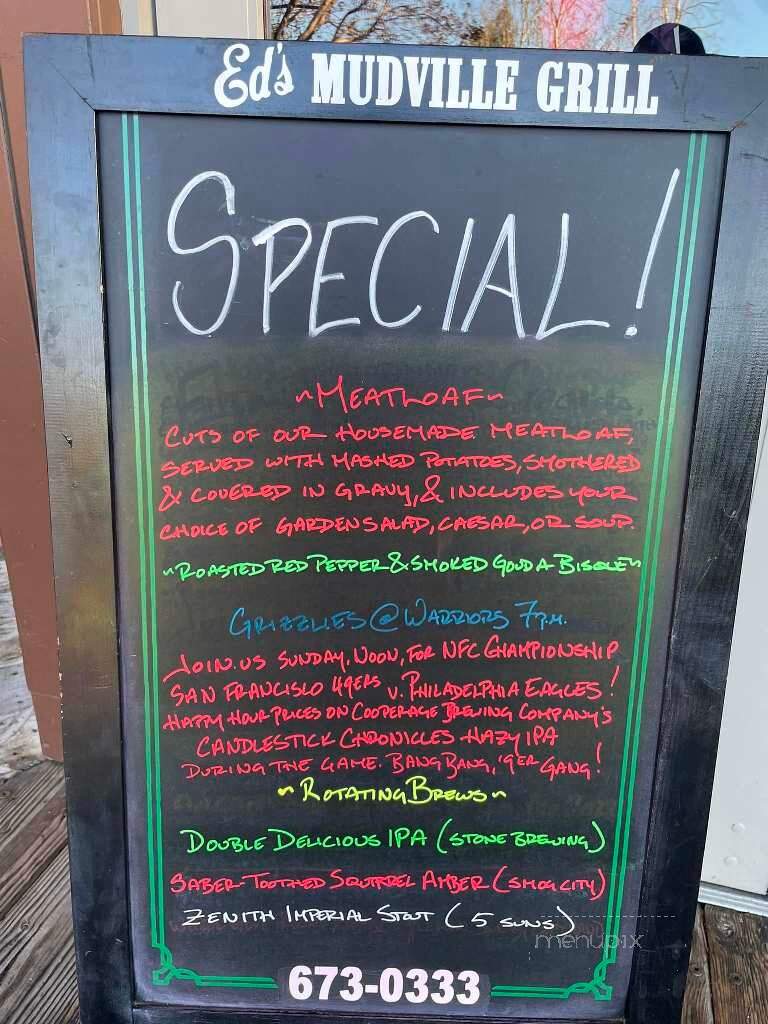 Ed's MUDVILLE GRILL
SPECIAL!
~MEATLOAF~
CUTS OF OUR HOUSEMADE MEATLOAF,
SERVED WITH MASHED POTATOES, SMOTHERED
& COVERED IN GRAVY, & INCLUDES YOUR
CHOICE OF GARDEN SALAD, CAESAR, OR SOUP.
~ROASTED RED PEPPER & SMOKED GOUDA BISQUE~
GRIZZLIES @ WARRIORS 7P.M.
JOIN US SUNDAY, NOON, FOR NFC CHAMPIONSHIP
SAN FRANCISCO 49ERS V. PHILADELPHIA EAGLES!
HAPPY HOUR PRICES ON COOPERAGE BREWING COMPANY'S
CANDLESTICK CHRONICLES HAZY IPA
DURING THE GAME. BANG BANG, '9ER GANG!
~ROTATING BREWS~
DOUBLE DELICIOUS IPA (STONE BREWING)
SABER-TOOTHED SQUIRREL AMBER (SMOG CITY)
ZENITH IMPERIAL STOUT (5 SUNS)
menupix
673-0333